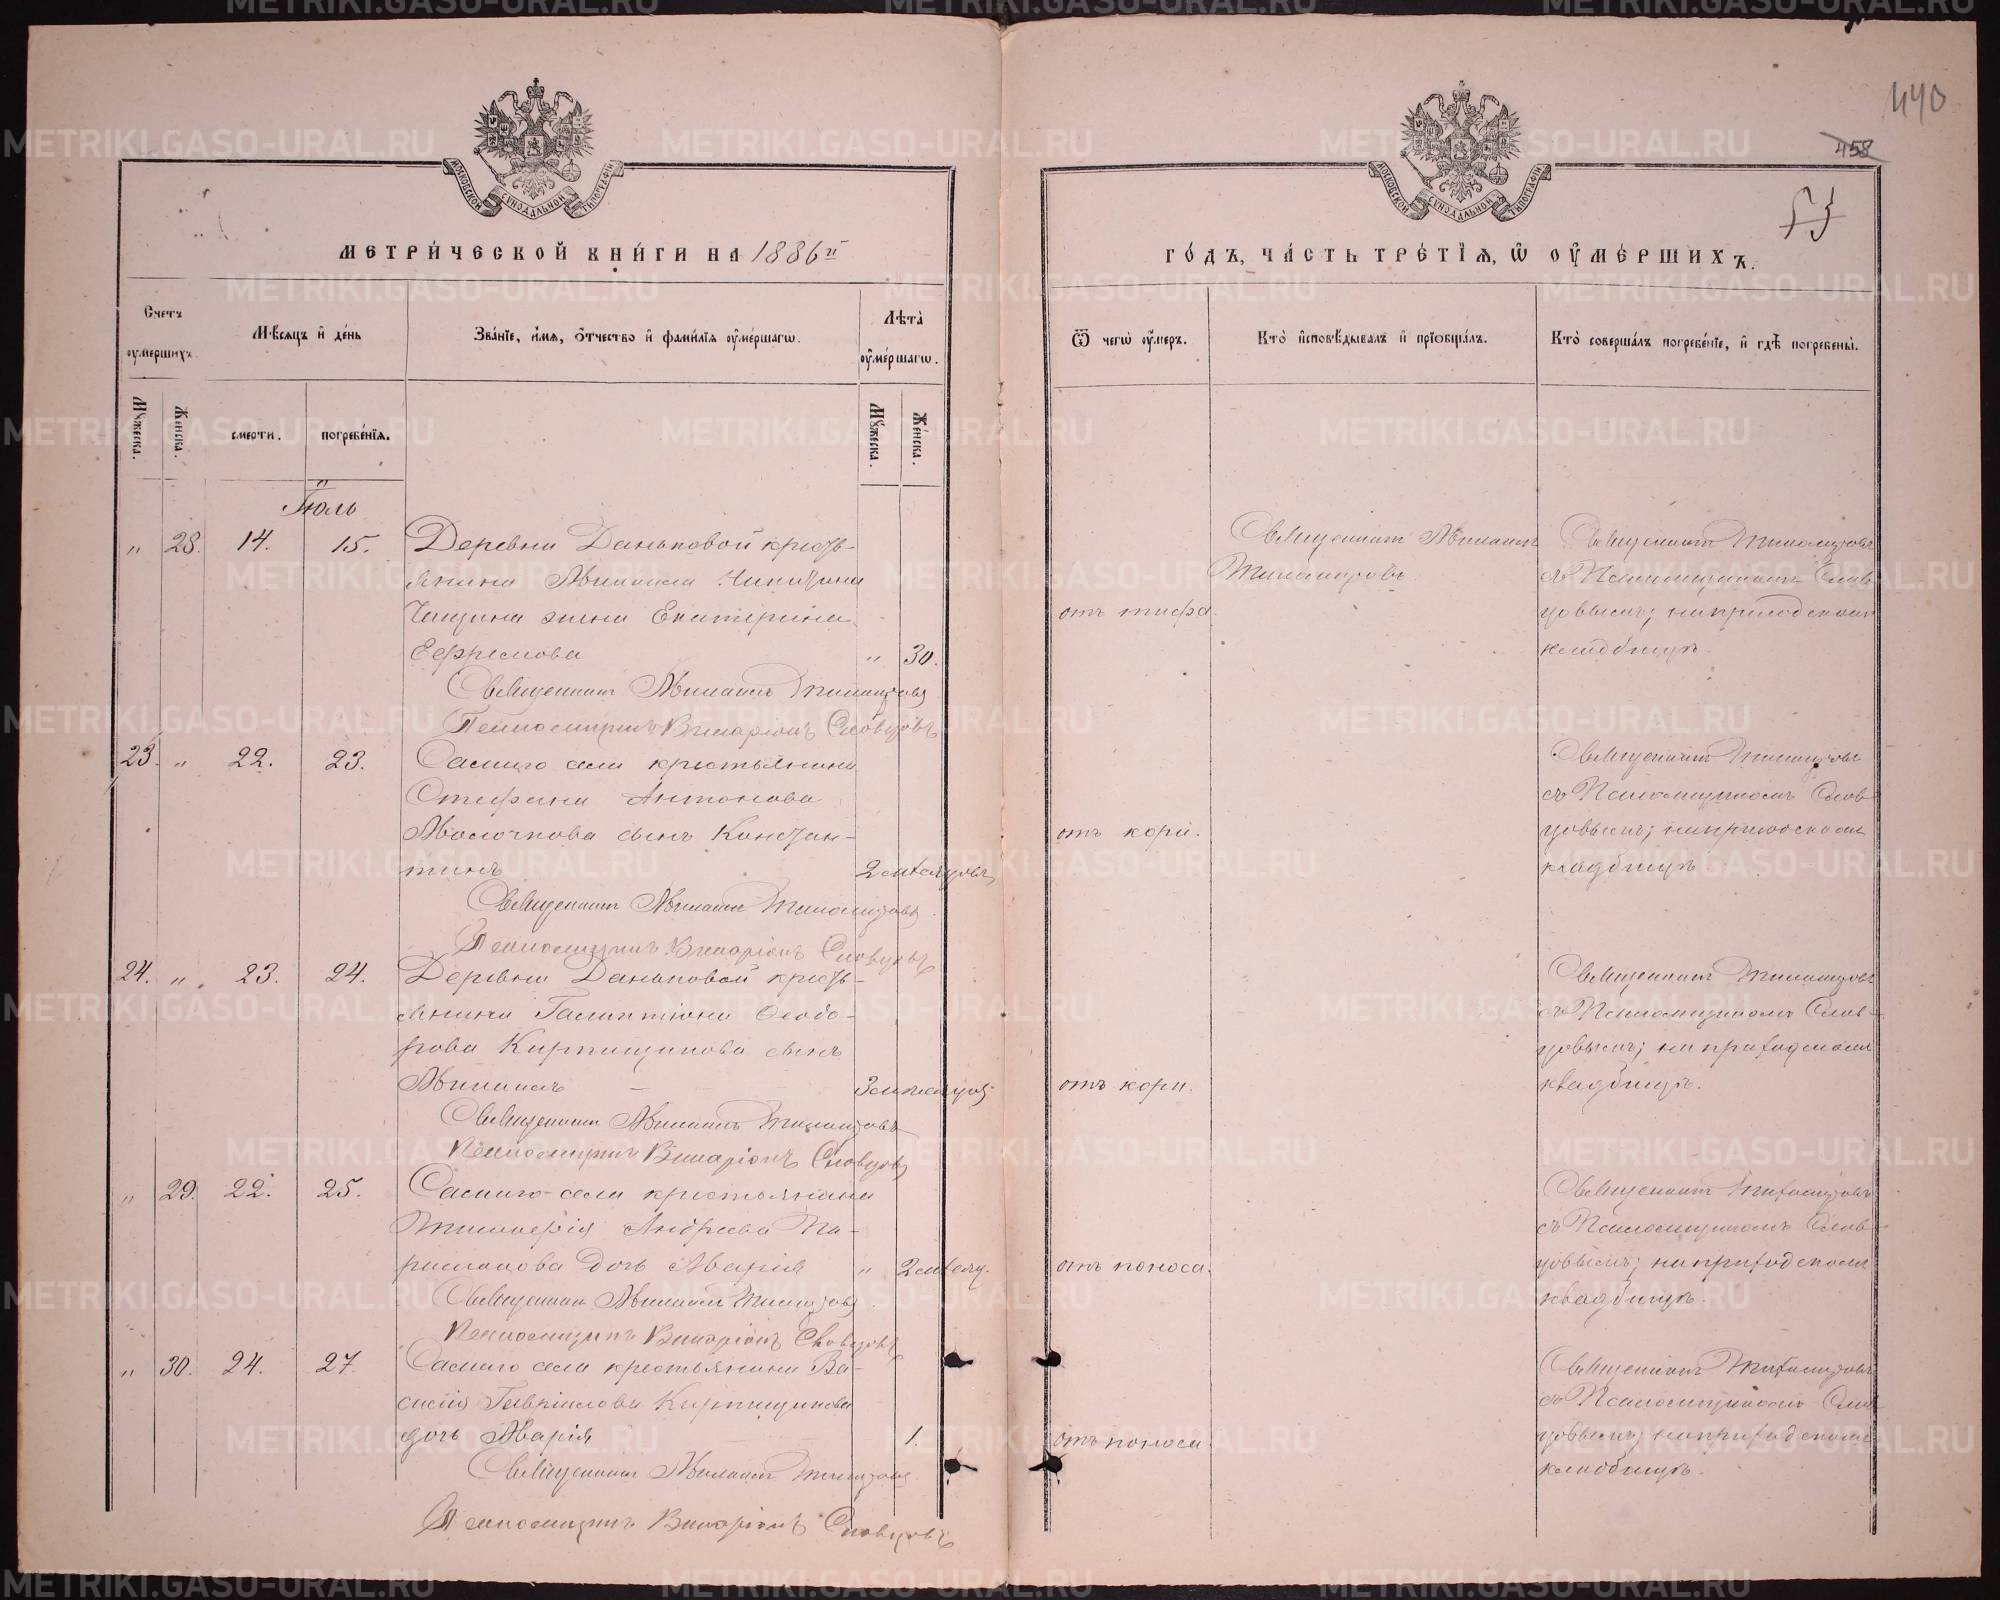 440
458
53
МОСКОВСКОЙ СѴНОДАЛЬНОЙ ТИПОГРАФІИ
МОСКОВСКОЙ СѴНОДАЛЬНОЙ ТИПОГРАФІИ
МЕТРИ́ЧЕСКОЙ КНИ́ГИ НА 1886й
ГО́ДЪ, ЧА́СТЬ ТРЕ́ТІѦ, Ѡ ОУ҆МЕ́РШИХЪ.
Счетъ оумершихъ.
Мѣсѧцъ и҆ де́нь
Зва́нїе, и҆́мѧ, ѻ҆́тчество и҆ фами́лїѧ оу҆ме́ршагѡ.
Лѣта̀ оу҆ме́ршагѡ.
Ѿ чегѡ̀ оу҆́меръ.
Кто̀ и҆сповѣ́дывалъ и҆ прїѡбща́лъ.
Кто̀ соверша́лъ погребе́нїе, и҆ гдѣ̀ погребены̀.
Мꙋжеска.
Женска.
смерти.
погребе́нїѧ.
Мꙋжеска.
Же́нска.
Іюль
" 28. 14. 15. Деревни Даньковой кресть-
янина Михаила Никитина
жена Екатерина
Ефремова " 30.
отъ тифа.
Священникъ Михаилъ
Тихомировъ.
Священникъ Тихомировъ
съ Псаломщикомъ Слов-
цовымъ; на приходскомъ
кладбищѣ.
Священникъ Михаилъ Тихомировъ
Псаломщикъ Иларіонъ Словцовъ
23. " 22. 23. Самаго села крестьянина
Стефана Антонова
Молочкова сынъ Констан-
тинъ 2 мѣсяцовъ
отъ кори.
Священникъ Тихомировъ
съ Псаломщикомъ Слов-
цовымъ; на приходскомъ
кладбищѣ
Священникъ Михаилъ Тихомировъ
Псаломщикъ Иларіонъ Словцовъ
24. " 23. 24. Деревни Даньковой кресть-
янина Галактіона Ѳеодо-
рова Кирпищикова сынъ
Михаилъ — — 3 мѣсяцовъ
отъ кори.
Священникъ Тихомировъ
съ Псаломщикомъ Слов-
цовымъ; на приходскомъ
кладбищѣ.
Священникъ Михаилъ Тихомировъ
Псаломщикъ Иларіонъ Словцовъ
" 29. 22. 25. Самаго села крестьянина
Тимоѳея Андреева Па-
дочь Марія " 2 мѣсяц.
отъ поноса.
Священникъ Тихомировъ
съ Псаломщикомъ Слов-
цовымъ; на приходскомъ
кладбищѣ.
Священникъ Михаилъ Тихомировъ
Псаломщикъ Иларіонъ Словцовъ
" 30. 24. 27. Самаго села крестьянина Ва-
силія Гавріилова Кирпищикова
дочь Марія 1.
отъ поноса.
Священникъ Тихомировъ
съ Псаломщикомъ Слов-
цовымъ; на приходскомъ
кладбищѣ.
Священникъ Михаилъ Тихомировъ
Псаломщикъ Иларіонъ Словцовъ
METRIKI.GASO-URAL.RU